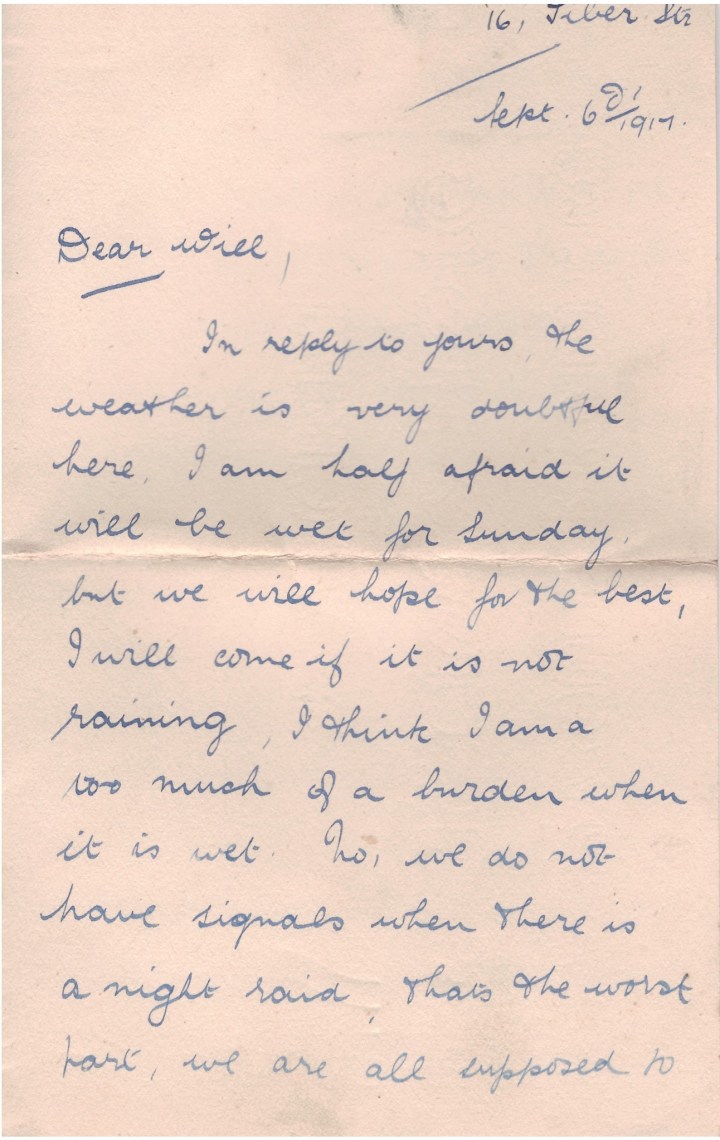 16, Tiber Str
Sept. 6th/1917.
Dear Will,
In reply to yours, the
weather is very doubtful
here, I am half afraid it
will be wet for Sunday,
but we will hope for the best,
I will come if it is not
raining, I think I am a
too much of a burden when
it is wet. No, we do not
have signals when there is
a night raid, thats the worst
part, we are all supposed to